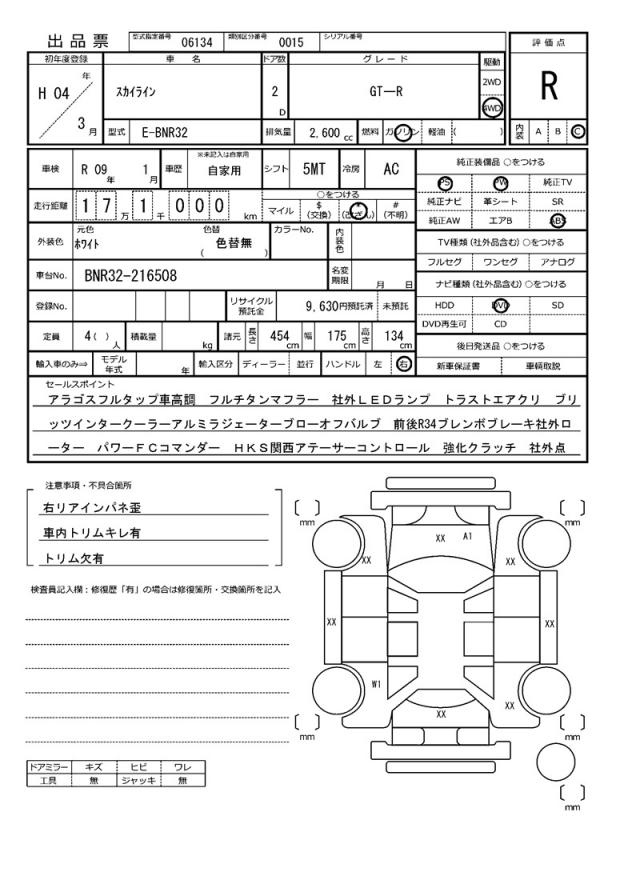 出品票 型式指定番号 06134 類別区分番号 0015 シリアル番号 評価点
初年度登録 車名 ドア数 グレード 駆動
H 04 年 3 月 スカイライン 2 D GT－R 2WD 4WD R
型式 E-BNR32 排気量 2,600 cc 燃料 ガソリン 軽油 ( ) 内装 A B C
車検 R 09 年 1 月 車歴 ※未記入は自家用 自家用 シフト 5MT 冷房 AC 純正装備品 ○をつける
PS PW 純正TV
走行距離 1 7 万 1 千 0 0 0 km ○をつける
マイル $ (交換) * (改ざん) # (不明)
純正ナビ 革シート SR
純正AW エアB ABS
外装色 元色 ホワイト 色替 色替無 ( ) カラーNo. 内装色
TV種類 (社外品含む) ○をつける
フルセグ ワンセグ アナログ
車台No. BNR32-216508 名変期限 月 日
ナビ種類 (社外品含む) ○をつける
登録No. リサイクル預託金 9,630円預託済 未預託
HDD DVD SD
DVD再生可 CD
定員 4( ) 人 積載量 kg 諸元 長さ 454 cm 幅 175 cm 高さ 134 cm
後日発送品 ○をつける
輸入車のみ⇒ モデル年式 年 輸入区分 ディーラー 並行 ハンドル 左 右 新車保証書 車輌取説
セールスポイント
アラゴスフルタップ車高調 フルチタンマフラー 社外ＬＥＤランプ トラストエアクリ ブリ
ッツインタークーラーアルミラジェーターブローオフバルブ 前後R34ブレンボブレーキ社外ロ
ーター パワーＦＣコマンダー ＨＫＳ関西アテーサーコントロール 強化クラッチ 社外点
注意事項・不具合箇所
右リアインパネ歪
車内トリムキレ有
トリム欠有
検査員記入欄：修復歴「有」の場合は修復箇所・交換箇所を記入
mm mm
XX A1
XX XX
XX XX
W1 XX
XX
mm mm
mm
ドアミラー キズ ヒビ ワレ
工具 無 ジャッキ 無